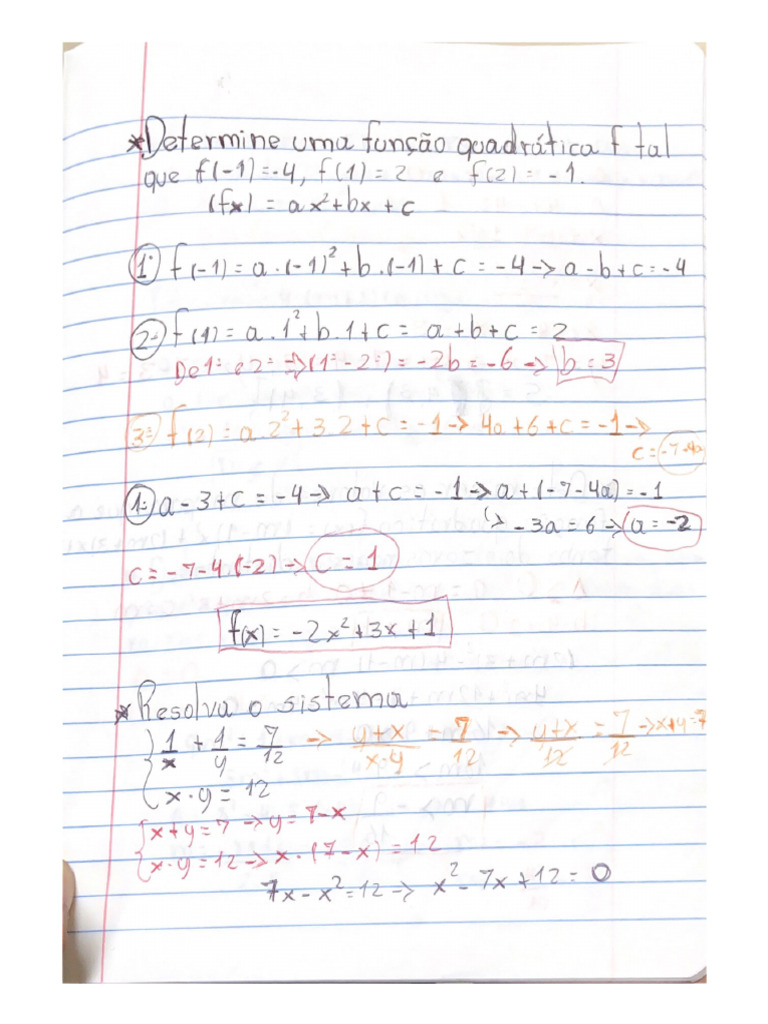 *Determine uma função quadrática f tal
que f(-1)=-4, f(1) = 2 e f(2) = -1.
(fx) = ax²+bx + c
1ª f(-1) = a.(-1)²+b.(-1)+c = -4 -> a-b+c=-4
2ª f(1) = a.1²+b.1+c = a+b+c = 2
De 1ª e 2ª => (1ª-2ª) = -2b = -6 -> b=3
3ª f(2) = a.2²+3.2+c = -1 -> 4a+6+c = -1 ->
c = -7-4a
1ª a-3+c = -4 -> a+c = -1 -> a+(-7-4a) = -1
↳ -3a = 6 -> a = -2
c = -7-4.(-2) -> c = 1
f(x) = -2x²+3x+1
* Resolva o sistema
{1/x + 1/y = 7/12 -> y+x/x.y = 7/12 -> y+x/12 = 7/12 -> x+y=7
x.y = 12
{x+y=7 -> y=7-x
x.y=12 -> x.(7-x) = 12
7x-x²=12 -> x²-7x+12=0